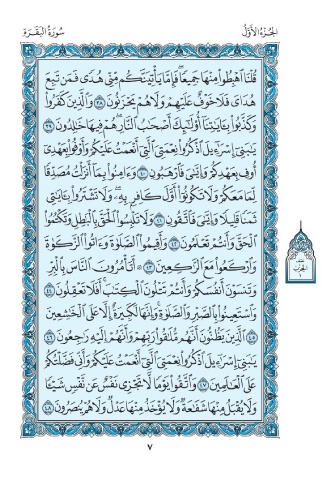 سُورَةُ البَقَرَةِ
الجُزءُ الأَوَّلُ
قُلْنَا ٱهْبِطُوا۟ مِنْهَا جَمِيعًۭا فَإِمَّا يَأْتِيَنَّكُم مِّنِّى هُدًۭى فَمَن تَبِعَ
هُدَاىَ فَلَا خَوْفٌ عَلَيْهِمْ وَلَا هُمْ يَحْزَنُونَ ٣٨ وَٱلَّذِينَ كَفَرُوا۟
وَكَذَّبُوا۟ بِـَٔايَـٰتِنَآ أُو۟لَـٰٓئِكَ أَصْحَـٰبُ ٱلنَّارِ ۖ هُمْ فِيهَا خَـٰلِدُونَ ٣٩
يَـٰبَنِىٓ إِسْرَٰٓءِيلَ ٱذْكُرُوا۟ نِعْمَتِىَ ٱلَّتِىٓ أَنْعَمْتُ عَلَيْكُمْ وَأَوْفُوا۟ بِعَهْدِىٓ
أُوفِ بِعَهْدِكُمْ وَإِيَّـٰىَ فَٱرْهَبُونِ ٤٠ وَءَامِنُوا۟ بِمَآ أَنزَلْتُ مُصَدِّقًۭا
لِّمَا مَعَكُمْ وَلَا تَكُونُوٓا۟ أَوَّلَ كَافِرٍۭ بِهِۦ ۖ وَلَا تَشْتَرُوا۟ بِـَٔايَـٰتِى
ثَمَنًۭا قَلِيلًۭا وَإِيَّـٰىَ فَٱتَّقُونِ ٤١ وَلَا تَلْبِسُوا۟ ٱلْحَقَّ بِٱلْبَـٰطِلِ وَتَكْتُمُوا۟
ٱلْحَقَّ وَأَنتُمْ تَعْلَمُونَ ٤٢ وَأَقِيمُوا۟ ٱلصَّلَوٰةَ وَءَاتُوا۟ ٱلزَّكَوٰةَ
وَٱرْكَعُوا۟ مَعَ ٱلرَّٰكِعِينَ ٤٣ ۞ أَتَأْمُرُونَ ٱلنَّاسَ بِٱلْبِرِّ
وَتَنسَوْنَ أَنفُسَكُمْ وَأَنتُمْ تَتْلُونَ ٱلْكِتَـٰبَ ۚ أَفَلَا تَعْقِلُونَ ٤٤
وَٱسْتَعِينُوا۟ بِٱلصَّبْرِ وَٱلصَّلَوٰةِ ۚ وَإِنَّهَا لَكَبِيرَةٌ إِلَّا عَلَى ٱلْخَـٰشِعِينَ
٤٥ ٱلَّذِينَ يَظُنُّونَ أَنَّهُم مُّلَـٰقُوا۟ رَبِّهِمْ وَأَنَّهُمْ إِلَيْهِ رَٰجِعُونَ ٤٦
يَـٰبَنِىٓ إِسْرَٰٓءِيلَ ٱذْكُرُوا۟ نِعْمَتِىَ ٱلَّتِىٓ أَنْعَمْتُ عَلَيْكُمْ وَأَنِّى فَضَّلْتُكُمْ
عَلَى ٱلْعَـٰلَمِينَ ٤٧ وَٱتَّقُوا۟ يَوْمًۭا لَّا تَجْزِى نَفْسٌ عَن نَّفْسٍۢ شَيْـًۭٔا
وَلَا يُقْبَلُ مِنْهَا شَفَـٰعَةٌۭ وَلَا يُؤْخَذُ مِنْهَا عَدْلٌۭ وَلَا هُمْ يُنصَرُونَ ٤٨
٧